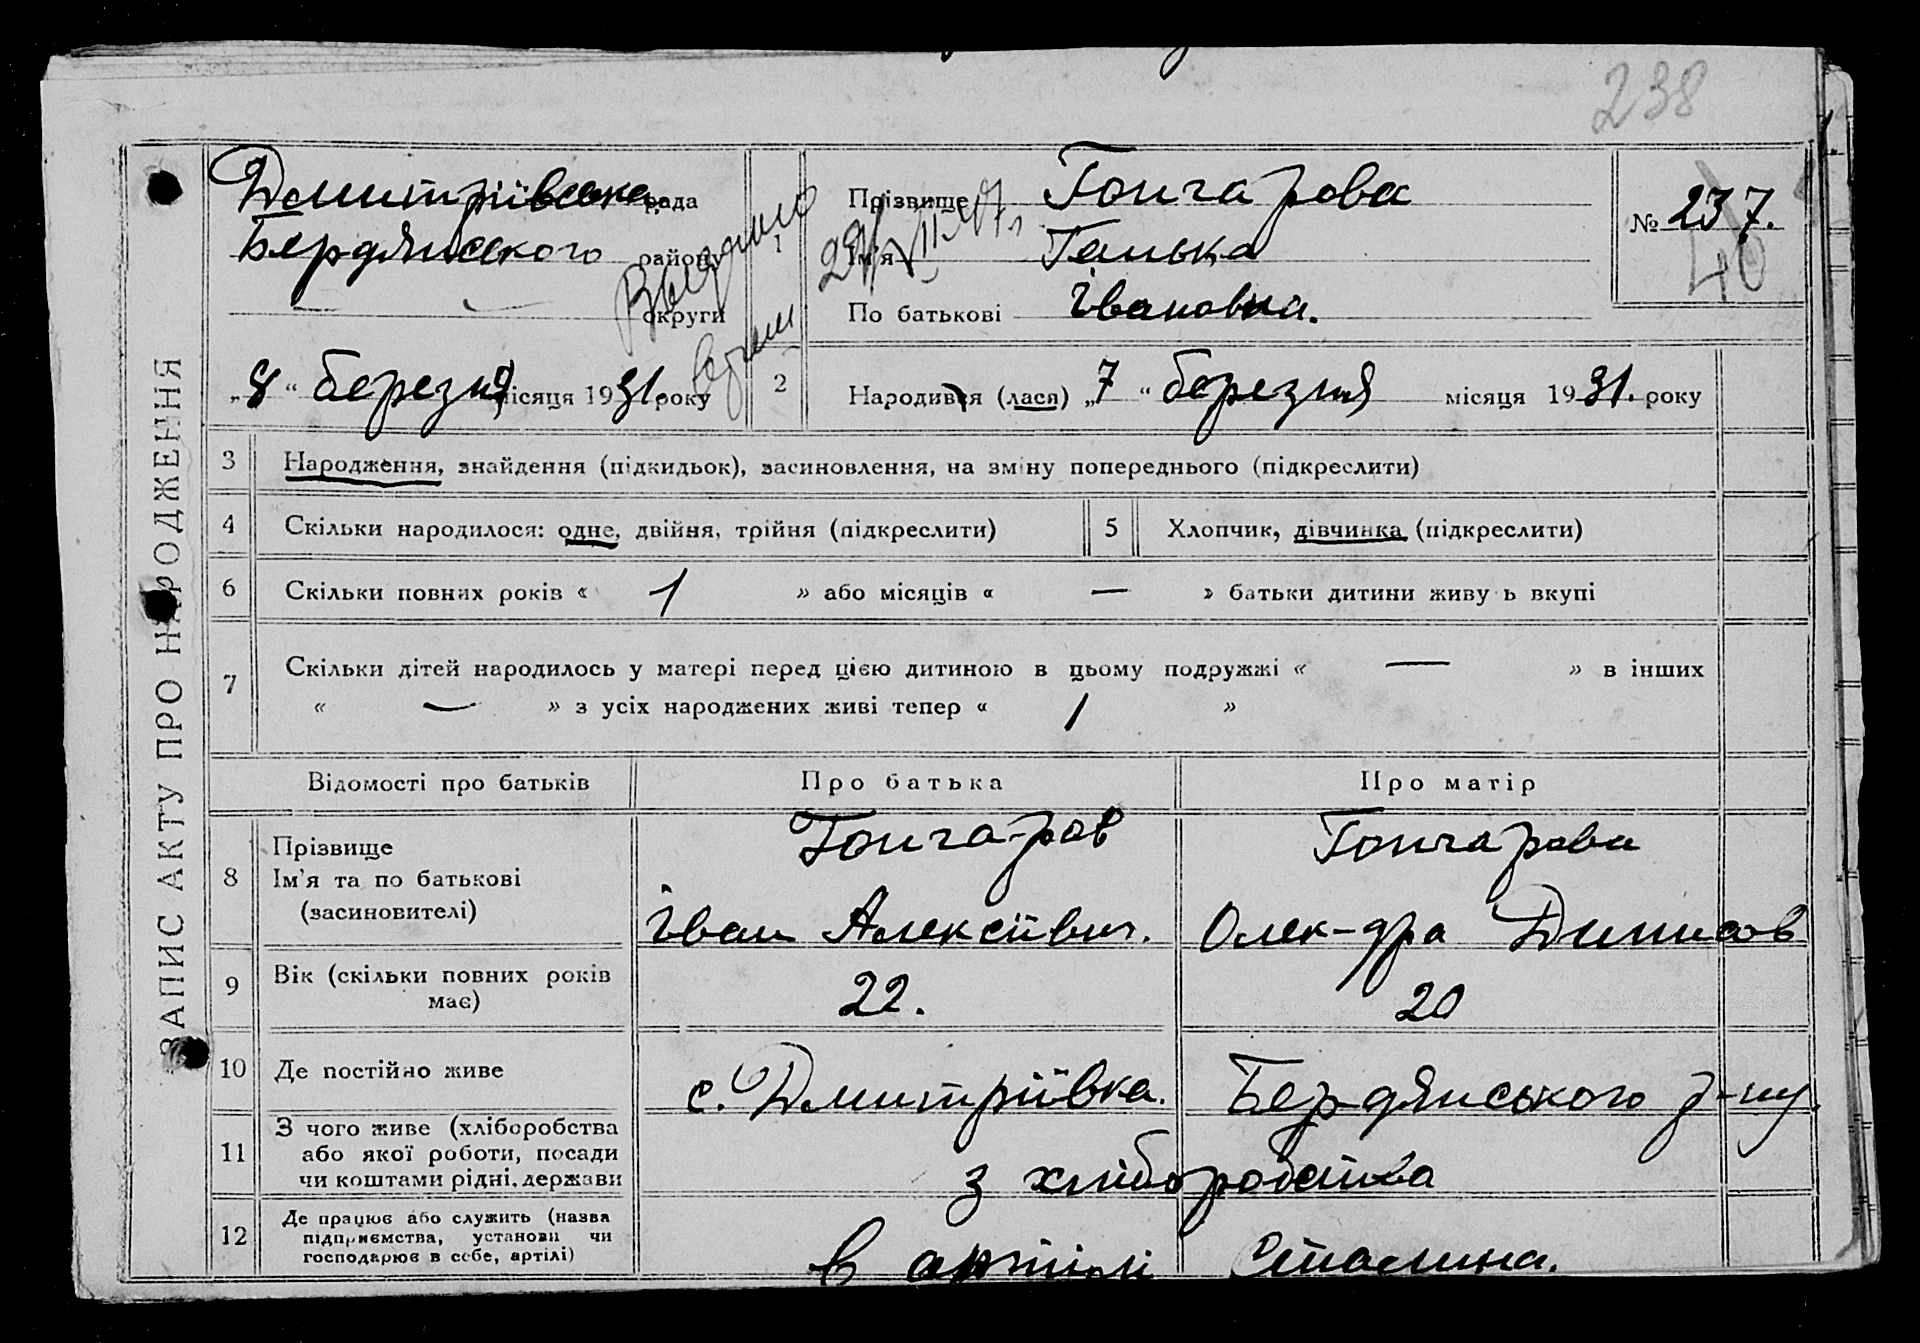 238
ЗАПИС АКТУ ПРО НАРОДЖЕННЯ
Дмитріївська рада
Бердянського району
округи
Выдано
1
Прізвище Гончарова
Ім'я Ганька
По батькові Івановна.
№ 237.
40
„8“ березня місяця 1931. року
2
Народився (лася) „7“ березня місяця 1931. року
3 Народження, знайдення (підкидьок), засиновлення, на зміну попереднього (підкреслити)
4 Скільки народилося: одне, двійня, трійня (підкреслити)
5 Хлопчик, дівчинка (підкреслити)
6 Скільки повних років « 1 » або місяців « — » батьки дитини живуть вкупі
7 Скільки дітей народилось у матері перед цією дитиною в цьому подружжі « — » в інших
« — » з усіх народжених живі тепер « 1 »
Відомості про батьків Про батька Про матір
8 Прізвище
Ім'я та по батькові
(засиновителі)
Гончаров Гончарова
Іван Алексіївич. Олек-дра Динисов
9 Вік (скільки повних років
має)
22. 20
10 Де постійно живе с. Дмитріївка. Бердянського р-ну.
11 З чого живе (хліборобства
або якої роботи, посади
чи коштами рідні, держави
з хліборобства
12 Де працює або служить (назва
підприємства, установи чи
господарює в себе, артілі)
в артілі Сталина.